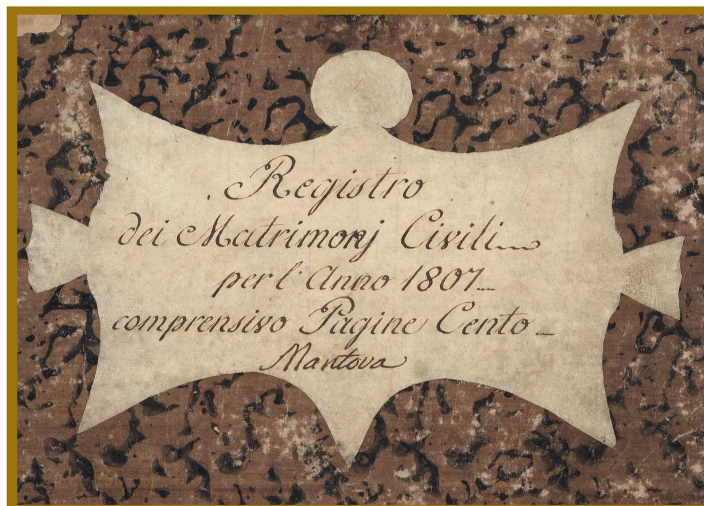 Registro
dei Matrimonj Civili
per l'Anno 1807
comprensivo Pagine Cento
Mantova